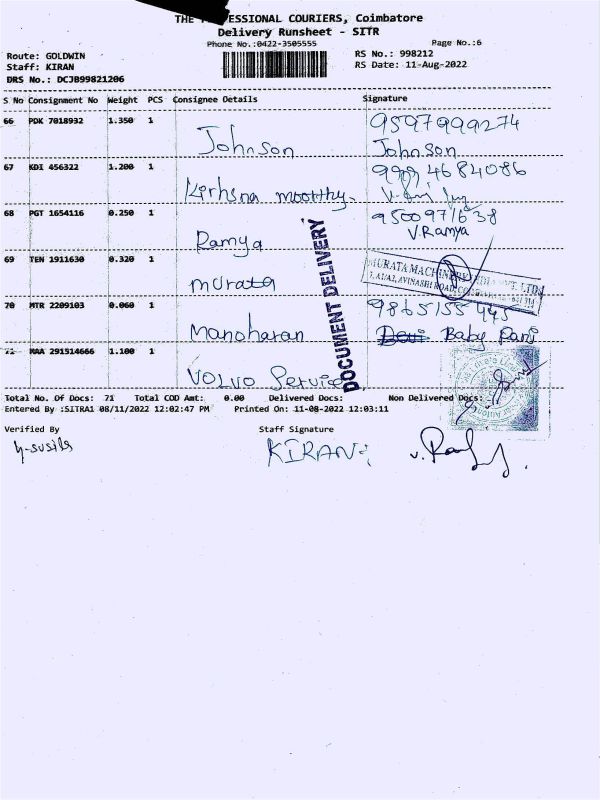 THE PROFESSIONAL COURIERS, Coimbatore
Delivery Runsheet - SITR
Phone No.:0422-3505555 Page No.:6
Route: GOLDWIN RS No.: 998212
Staff: KIRAN RS Date: 11-Aug-2022
DRS No.: DCJB99821206
S No Consignment No Weight PCS Consignee Details Signature
66 PDK 7018932 1.350 1 9597999274
Johnson Johnson
67 KDI 456322 1.200 1
Kirhsna moorthy.
68 PGT 1654116 0.250 1 9500971638
Ramya V.Ramya
69 TEN 1911630 0.320 1
murata
MURATA MACHINERY INDIA PVT. LTD.
AVINASHI ROAD
70 MTR 2209103 0.060 1 9865155445
Manoharan Devi Baby Rani
71 MAA 291514666 1.100 1
VOLVO Service
DOCUMENT DELIVERY
Total No. Of Docs: 71 Total COD Amt: 0.00 Delivered Docs: Non Delivered Docs:
Entered By :SITRA1 08/11/2022 12:02:47 PM Printed On: 11-08-2022 12:03:11
Verified By Staff Signature
KIRAN